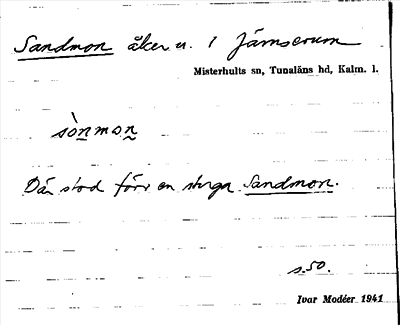 Sandmon åker u. 1 Jämserum
Misterhults sn, Tunaläns hd, Kalm. l.
sònmon
Där stod förr en stuga Sandmon.
s. 50.
Ivar Modéer 1941